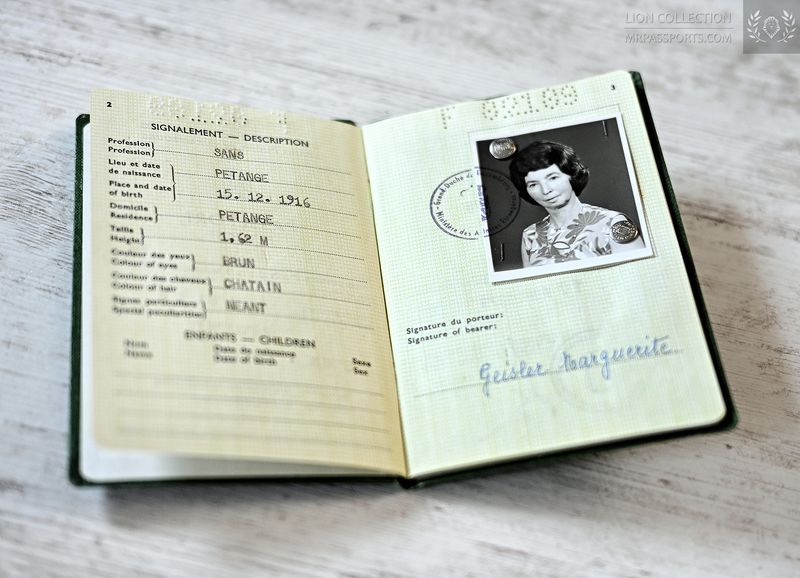 LION COLLECTION
MRPASSPORTS.COM
2
SIGNALEMENT — DESCRIPTION
Profession
Profession
SANS
Lieu et date
de naissance
PETANGE
Place and date
of birth
15. 12. 1916
Domicile
Residence
PETANGE
Taille
Height
1,62 M
Couleur des yeux
Colour of eyes
BRUN
Couleur des cheveux
Colour of hair
CHATAIN
Signes particuliers
Special peculiarities
NEANT
ENFANTS — CHILDREN
Nom
Name
Date de naissance
Date of birth
Sexe
Sex
3
F 02109
Grand-Duché de Luxembourg
Ministère des Affaires Etrangères
Signature du porteur:
Signature of bearer:
Geisler Marguerite